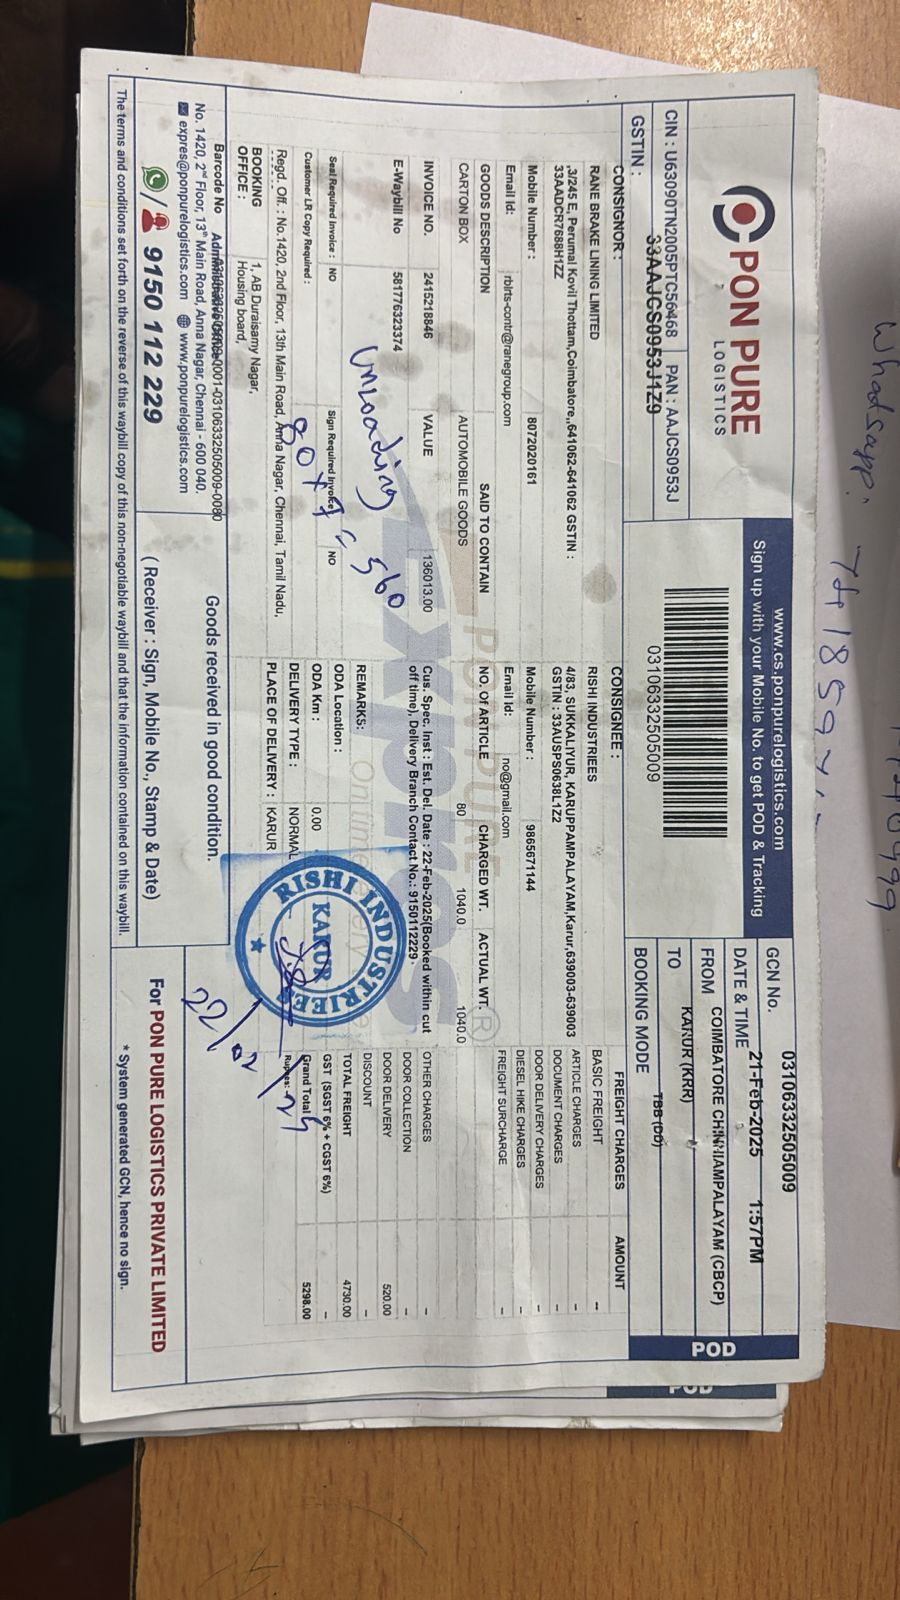 PON PURE
LOGISTICS
CIN : U63090TN2005PTC56468 PAN : AAJCS0953J
GSTIN : 33AAJCS0953J1Z9
www.cs.ponpurelogistics.com
Sign up with your Mobile No. to get POD & Tracking
03106332505009
GCN No. 03106332505009
DATE & TIME 21-Feb-2025 1:57PM
FROM COIMBATORE CHINNIAMPALAYAM (CBCP)
TO KARUR (KRR)
BOOKING MODE TBB (DD)
POD
CONSIGNOR :
RANE BRAKE LINING LIMITED
,3/245 E, Perumal Kovil Thottam,Coimbatore,,641062-641062 GSTIN :
33AADCR7688H1ZZ
Mobile Number : 8072020161
Email Id: rblrts-contr@ranegroup.com
CONSIGNEE :
RISHI INDUSTRIEES
4/83, SUKKALIYUR, KARUPPAMPALAYAM,Karur,639003-639003
GSTIN : 33AUSPS0638L1Z2
Mobile Number : 9865671144
Email Id: no@gmail.com
GOODS DESCRIPTION SAID TO CONTAIN NO. OF ARTICLE CHARGED WT. ACTUAL WT.
CARTON BOX AUTOMOBILE GOODS 80 1040.0 1040.0
INVOICE NO. 2415218846 VALUE 136013.00
E-Waybill No 581776323374
Cus. Spec. Inst : Est. Del. Date : 22-Feb-2025(Booked within cut
off time), Delivery Branch Contact No.: 9150112229
Seal Required Invoice : NO Sign Required Invoice NO
Customer LR Copy Required :
Unloading
80 x 7 = 560
REMARKS:
ODA Location :
ODA Km : 0.00
DELIVERY TYPE : NORMAL
PLACE OF DELIVERY : KARUR
Regd. Off. : No.1420, 2nd Floor, 13th Main Road, Anna Nagar, Chennai, Tamil Nadu,
BOOKING OFFICE : 1, AB Duraisamy Nagar,
Housing board,
FREIGHT CHARGES AMOUNT
BASIC FREIGHT --
ARTICLE CHARGES –
DOCUMENT CHARGES –
DOOR DELIVERY CHARGES –
DIESEL HIKE CHARGES –
FREIGHT SURCHARGE –
OTHER CHARGES –
DOOR COLLECTION –
DOOR DELIVERY 520.00
DISCOUNT –
TOTAL FREIGHT 4730.00
GST (SGST 6% + CGST 6%) –
Grand Total 5298.00
Rupees:
PON PURE
expres
Ontime
RISHI INDUSTRIEES
KARUR
22/02/25
Barcode No 03106332505009-0001-03106332505009-0080
No. 1420, 2nd Floor, 13th Main Road, Anna Nagar, Chennai - 600 040.
expres@ponpurelogistics.com www.ponpurelogistics.com
9150 112 229
Goods received in good condition.
( Receiver : Sign, Mobile No., Stamp & Date)
For PON PURE LOGISTICS PRIVATE LIMITED
* System generated GCN, hence no sign.
The terms and conditions set forth on the reverse of this waybill copy of this non-negotiable waybill and that the information contained on this waybill.
Whatsapp.
POD